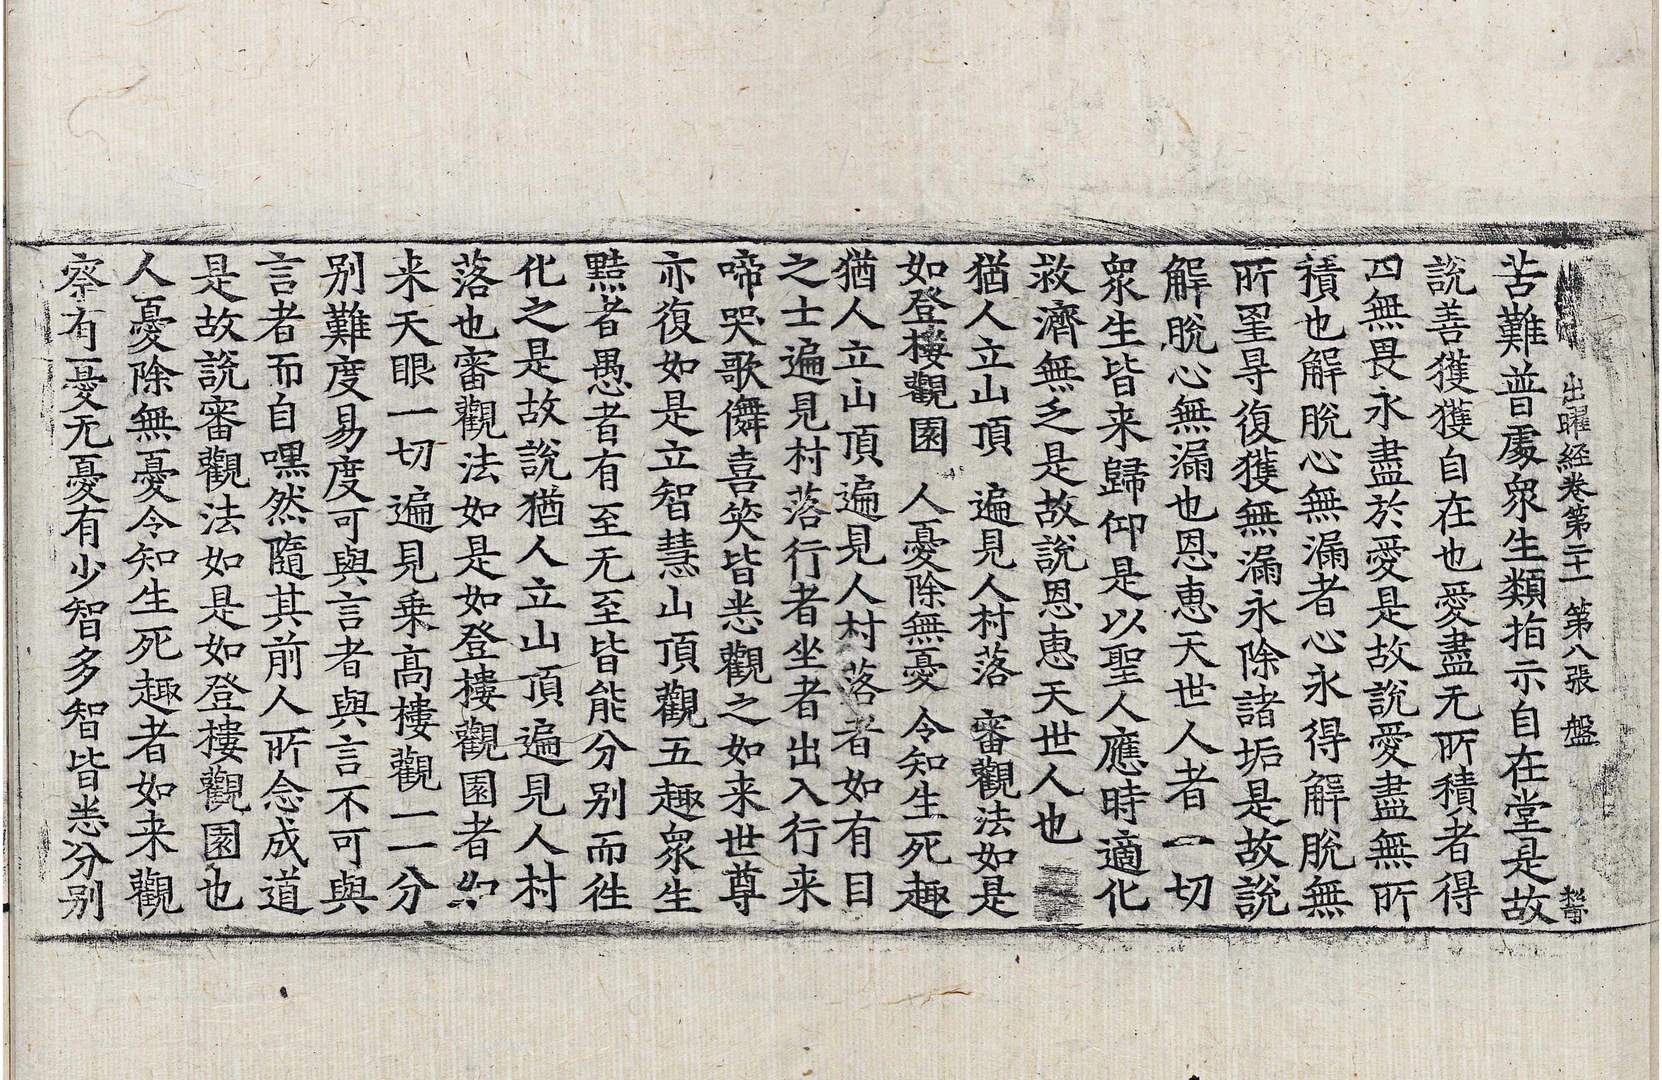 出曜経卷第二十一 第八張 盤
苦難普處衆生類指示自在堂是故
說善獲獲自在也愛盡无所積者得
四無畏永盡於愛是故說愛盡無所
積也解脫心無漏者心永得解脫無
所罣㝵復獲無漏永除諸垢是故說
解脫心無漏也恩惠天世人者一切
衆生皆来歸仰是以聖人應時適化
救濟無乏是故說恩惠天世人也
猶人立山頂 遍見人村落 審觀法如是
如登樓觀園 人憂除無憂 令知生死趣
猶人立山頂遍見人村落者如有目
之士遍見村落行者坐者出入行来
啼哭歌儛喜笑皆悉觀之如来世尊
亦復如是立智慧山頂觀五趣衆生
黠者愚者有至无至皆能分别而往
化之是故說猶人立山頂遍見人村
落也審觀法如是如登樓觀園者如
来天眼一切遍見乗高樓觀一一分
别難度易度可與言者與言不可與
言者而自嘿然隨其前人所念成道
是故說審觀法如是如登樓觀園也
人憂除無憂令知生死趣者如来觀
察有憂无憂有少智多智皆悉分别